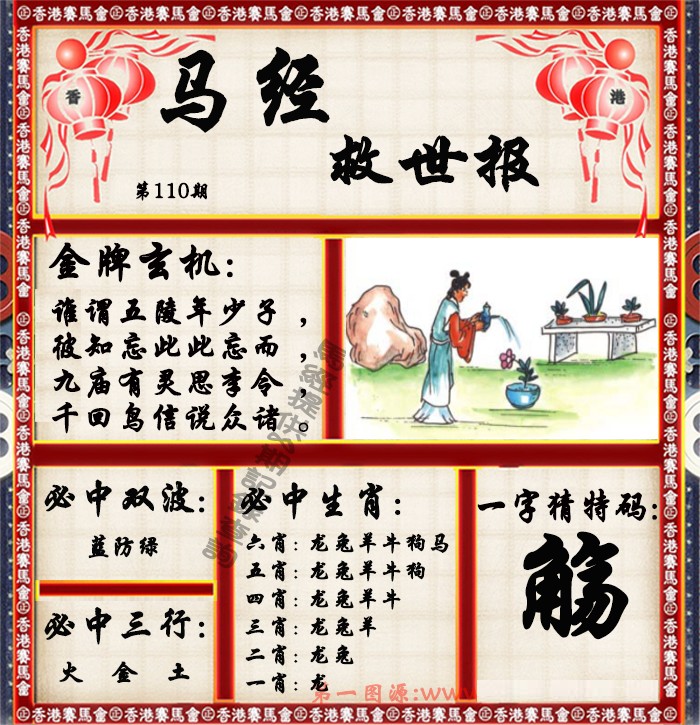 香港賽馬會
香
港
马经
救世报
第110期
金牌玄机：
谁谓五陵年少子，
彼知忘此此忘而，
九庙有灵思李令，
千回鸟信说众诸。
必中双波：
蓝防绿
必中三行：
火 金 土
必中生肖：
六肖：龙兔羊牛狗马
五肖：龙兔羊牛狗
四肖：龙兔羊牛
三肖：龙兔羊
二肖：龙兔
一肖：龙
一字猜特码：
觞
第一图源:www